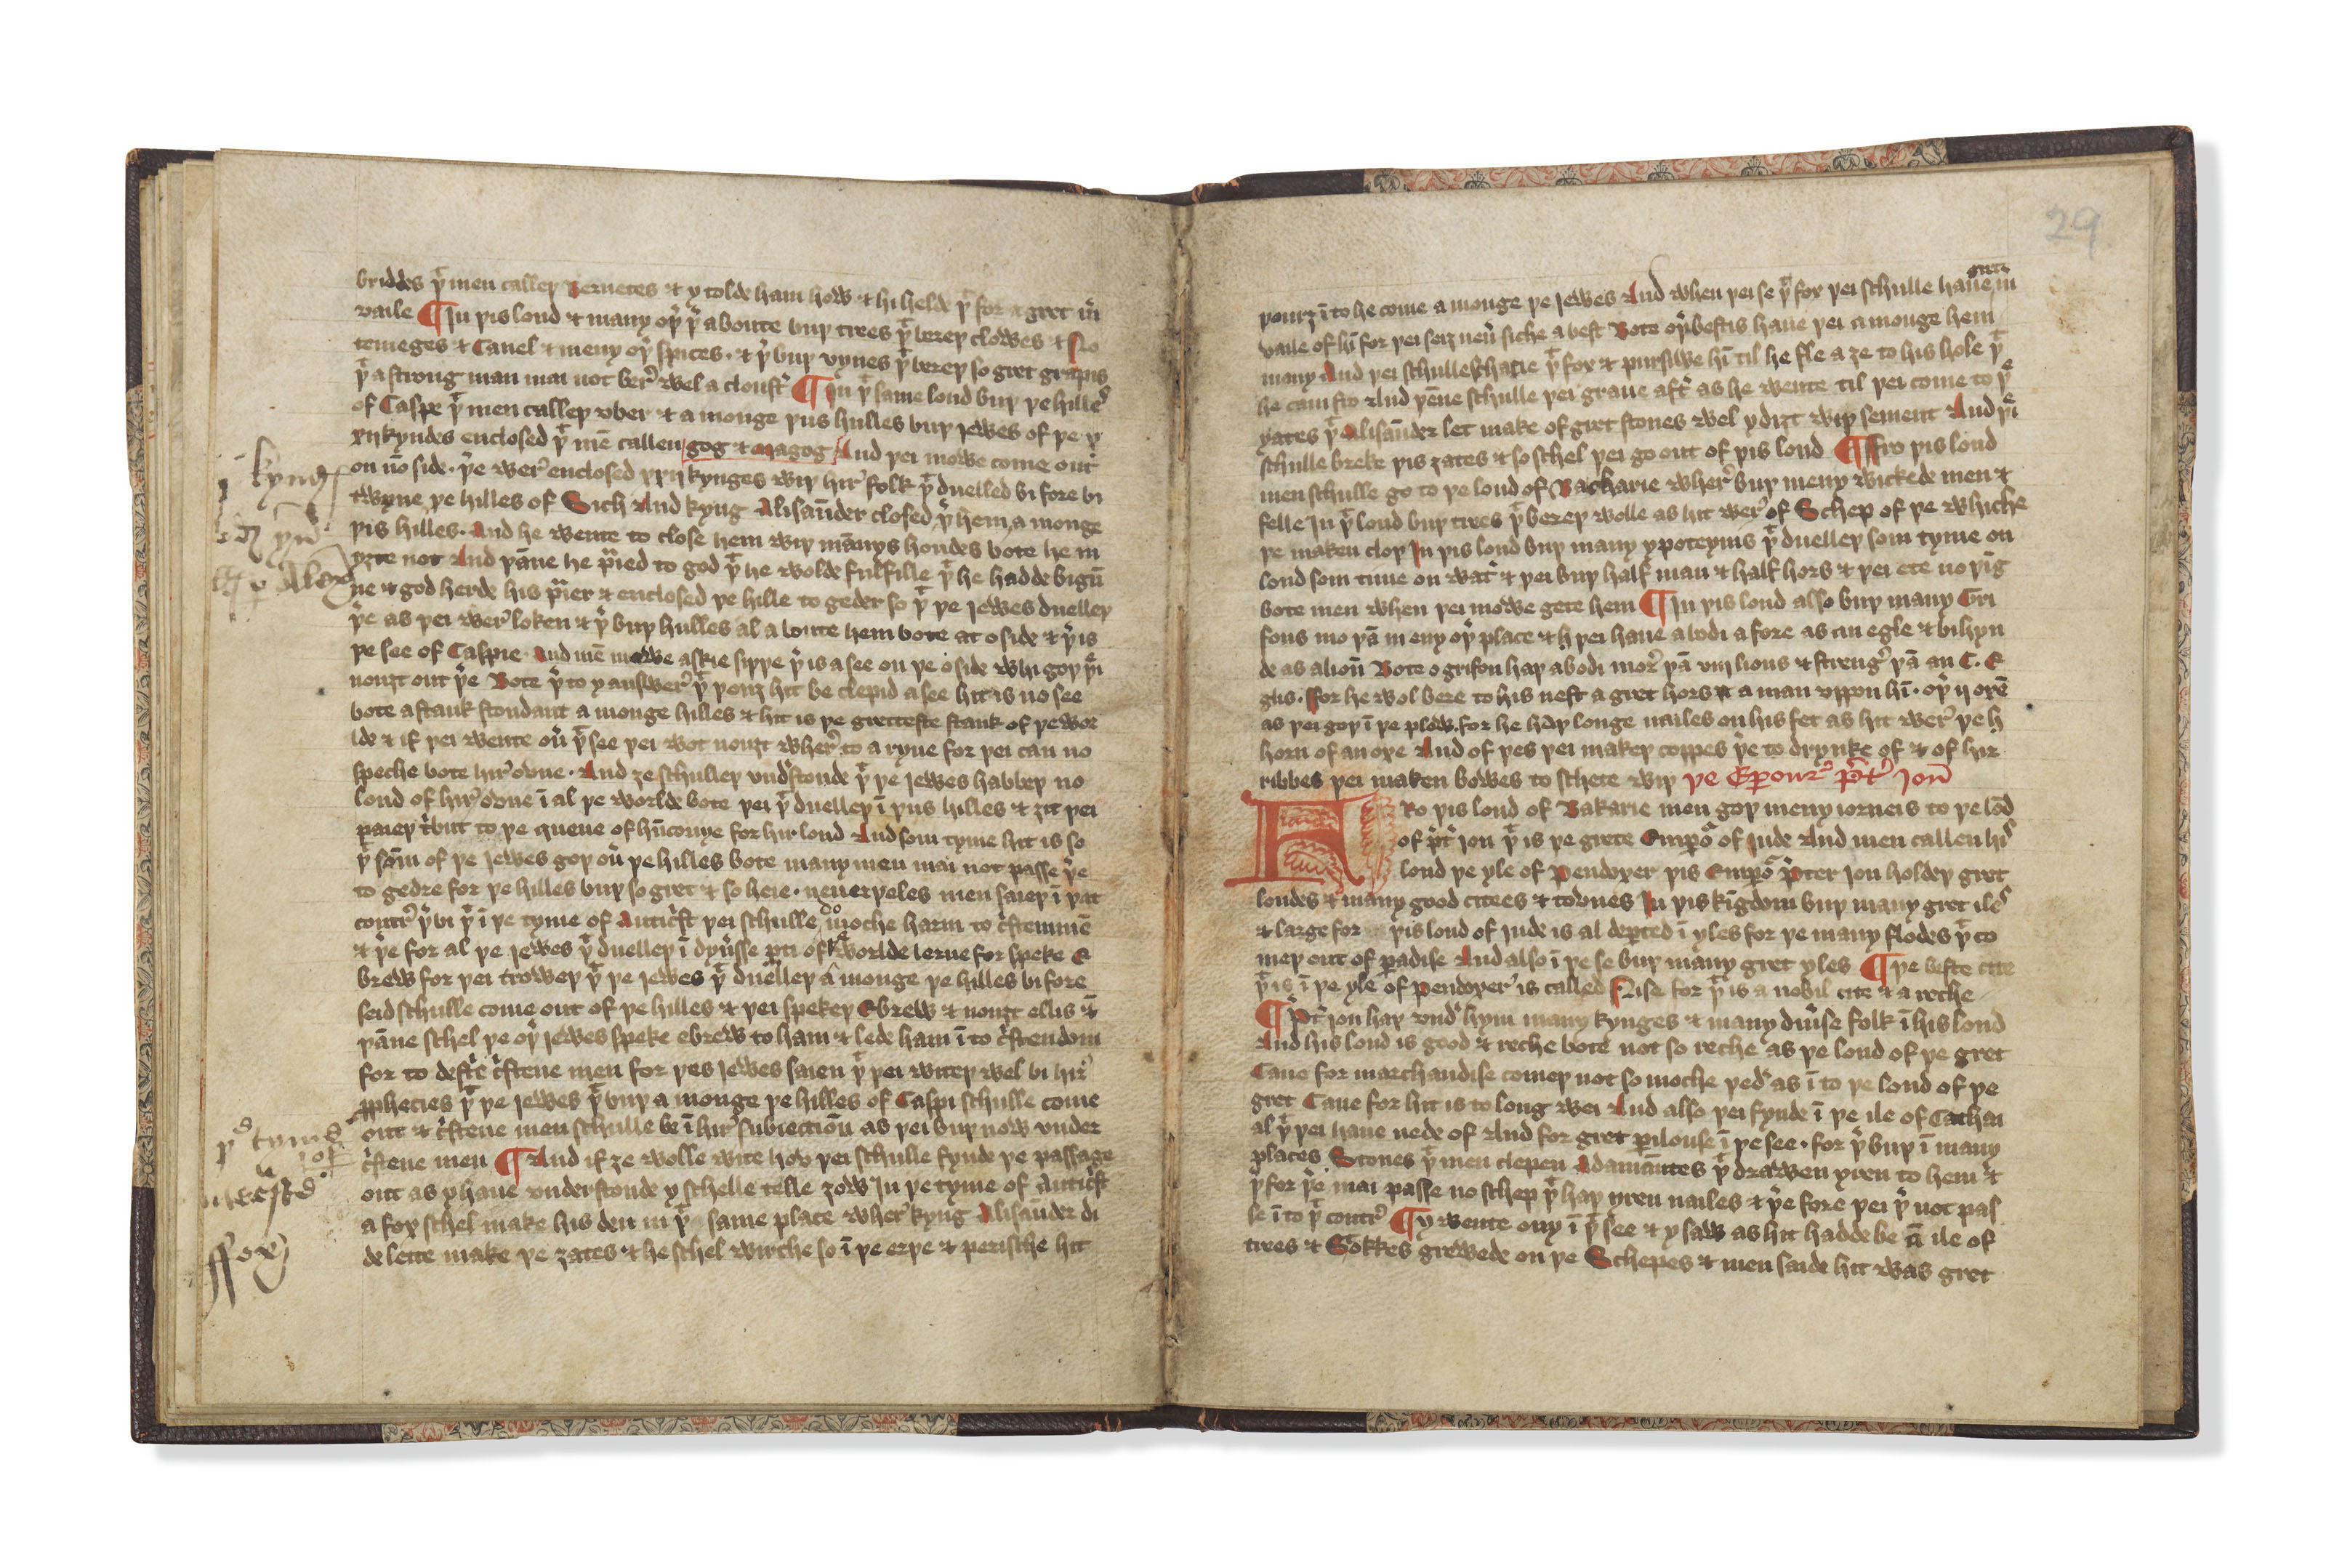 briddes þᵗ men calleþ Bernetes & y tolde ham how & hi helde þᵗ for a gret m̄
vaile ¶ In þis lond & many oþ̛ þ̛ a boute buþ trees þᵗ bereþ clowes & No
temeges & Canel & meny oþ̛ spices · & þ̛ buþ vynes þᵗ bereþ so gret grapis
þᵗ a strong man mai not ber̛ wel a cloust̛ ¶ In þᵗ same lond buþ þe hilles
of Caspe þᵗ men calleþ vber & a monge þus hulles buþ jewes of þe y
xij kyndes enclosed þᵗ mē callen gog & magog And þei mowe come out
on no side · þ̛e wer̛ enclosed xxij kynges wiþ hir̛ folk þᵗ duelled bi fore bi
twyne þe hilles of Sich And kyng Alisaūder closed þ̛ hem a monge
þis hilles · And he wente to close hem wiþ mānys hondes bote he m
yȝte not And þāne he pᵃied to god þᵗ he wolde fulfille þᵗ he hadde bigū
ne & god herde his pᵃier & enclosed þe hille to geder so þᵗ þe jewes duelleþ
þ̛e as þei wer̛ loken & þ̛ buþ hulles al a boute hem bote at o side & þ̛ is
þe see of Caspie · And mē mowe askie siþþe þ̛ is a see on þe o side whi goþ þᵉi
nouȝt out þ̛e Bote þ̛ to y answer̛ þᵗ þouȝ hit be clepid a see hit is no see
bote a stank stondant a monge hilles & hit is þe gretteste stank of þe wor
lde & if þei wente oư þᵗ see þei wot nouȝt wher̛ to a ryue for þei can no
speche bote hir̛ owne · And ȝe schulleþ vnd̛stonde þᵗ þe jewes habbeþ no
lond of hir̛ owne ī al þe worlde bote þei þᵗ duelleþ ī þus hilles & ȝit þei
paieþ t̛but to þe quene of hūconye for hir lond And som tyme hit is so
þᵗ som of þe jewes goþ oư þe hilles bote many men mai not passe þ̛e
to gedre for þe hilles buþ so gret & so heie · neuerþeles men saieþ ī þat
contr̛ þ̛ bi þᵗ ī þe tyme of Antic̛st þei schulle do moche harm to c̛stenmē
& þ̛e for al þe jewes þᵗ duelleþ ī dyưsse pti of þe worlde lerne for speke E
brew for þei troweþ þᵗ þe jewes þᵗ duelleþ a monge þe hilles bi fore
seid schulle come out of þe hilles & þei spekeþ Ebrew & nouȝt ellis &
þāne schel þe oþ̛ jewes speke ebrew to ham & lede ham ī to c̛stendom
for to dest̛e c̛stene men for þes jewes saien þᵗ þei witeþ wel bi hir̛
pphecies þᵗ þe jewes þᵗ buþ a monge þe hilles of Caspi schulle come
out & c̛stene men schulle be ī hir̛ subiectiōn as þei buþ now vnder
c̛stene men ¶ And if ȝe wolle wite how þei schulle fynde þe passage
out as y haue vnderstonde y schelle telle ȝow In þe tyme of Antic̛st
a fox schel make his den in þᵗ same place wher̛ kyng Alisaūder di
de lette make þe ȝates & he schel wirche so ī þe erþe & perische hit
kyngs
Alex
tyme
of
ffox
29
þourȝ ī to he come a monge þe jewes And when þei se þᵗ fox þei schulle haue gret m
vaile of hī for þei seiȝ neư siche a best Bote oþ̛ bestis haue þei a monge hem
mony And þei schulle schacie þᵗ fox & pursiwe hī til he fle a ȝe to his hole þᵗ
he cam fro And þēne schulle þei graue aft̛ as he wente til þei come to þᵉ
yates þᵗ Alisaūder let make of gret stones wel y diȝt wiþ sement And þᵉi
schulle breke þis ȝates & so schel þei go out of þis lond ¶ ffro þis lond
men schulle go to þe lond of Bacharie wher̛ buþ meny wickede men &
felle In þᵗ lond buþ trees þᵗ bereþ wolle as hit wer̛ of Schep of þe whiche
þe maken cloþ In þis lond buþ many ypoteyms þᵗ duelleþ som tyme on
lond som time on wat̛ & þei buþ half man & half hors & þei ete no þīg
bote men when þei mowe gete hem ¶ In þis lond also buþ many Gri
fons mo þā in eny oþ̛ place & þei haue a bodi a fore as an egle & bihyn
de as a lioū Bote o grifon haþ a bodi mor̛ þā viij lions & streng̛ þā an C. E
glis · ffor he wol bere to his nest a gret hors & a man vppon hī · oþ̛ ij oxē
as þei goþ ī þe plow for he haþ longe nailes on his fet as hit wer̛ þe h
horn of an oxe And of þes þei makeþ coppes þ̛e to drynke of & of hir
ribbes þei maken bowes to schete wiþ þe Eþour̛ þ̛t̛ Jon
FRo þis lond of Bakarie men goþ meny iorneis to þe lōd
of p̛t̛ jon þᵗ is þe grete Emþoᵘ of Inde And men callen hiˢ
lond þe yle of Pendoxer þis Emþoᵘ p̛ter Jon holdeþ gret
londes & many good citees & townes In þis kīgdom buþ many gret iles
& large for þis lond of Inde is al depted ī yles for þe many flodes þᵗ co
meþ out of padise And also ī þe se buþ many gret yles ¶ þe beste cite
þᵗ is ī þe yle of Pendoxer̛ is called Nise for þᵗ is a nobil cite & a reche
¶ P̛t̛ jon haþ vnd̛ hym many kynges & many diưse folk ī his lond
And his lond is good & reche bote not so reche as þe lond of þe gret
Cane for marchandise comeþ not so moche þed̛ as ī to þe lond of þe
gret Cane for hit is to long wei And also þei fynde ī þe ile of Cathai
al þᵗ þei haue nede of And for gret pilouse ī þe see · for þ̛ buþ ī many
places Stones þᵗ men clepen Adamāntes þᵗ drawen yren to hem &
þ̛ for þ̛e mai passe no schep þᵗ haþ yren nailes & þ̛e fore þei þ̛ not pas
se ī to þᵗ contr̛ ¶ y wente ony ī þᵗ see & y saw as hit hadde be ā ile of
trees & Stokkes grewede on þe Schepes & men saide hit was gret